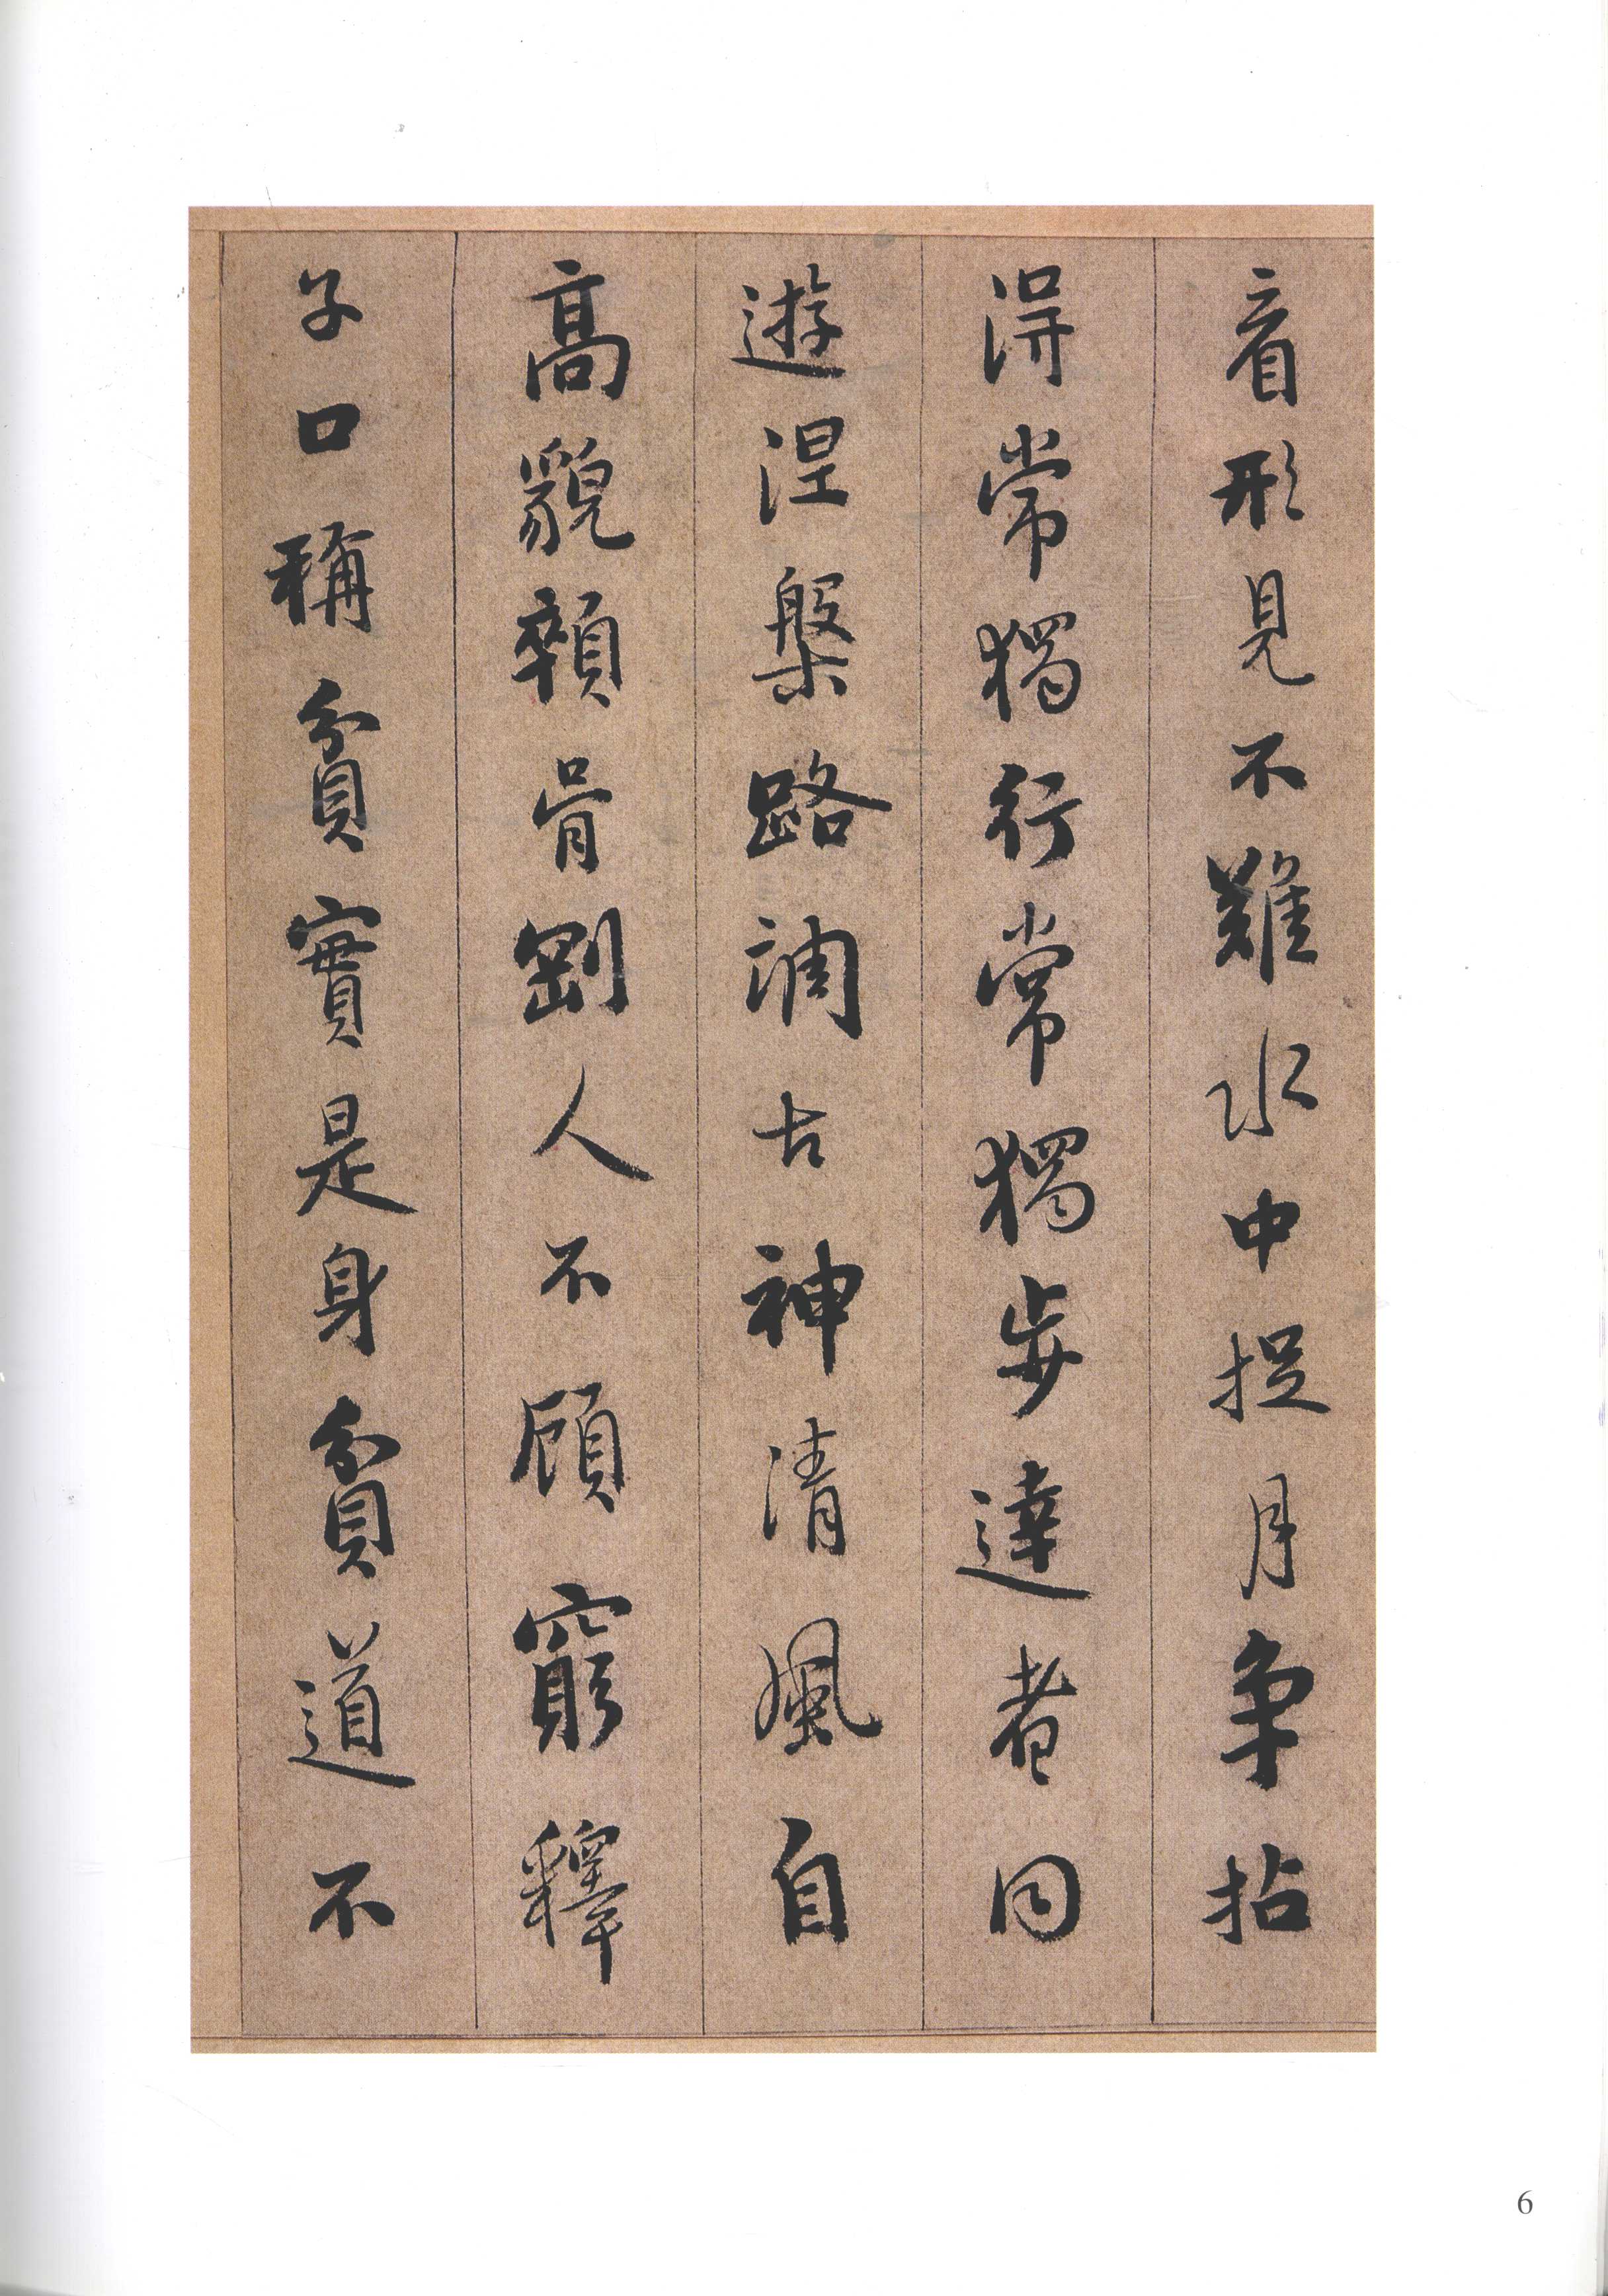 音形見不難水中捉月爭拈
得常獨行常獨步達者同
遊涅槃路調古神清風自
高貌顇骨剛人不顧窮釋
子口稱貧實是身貧道不
6